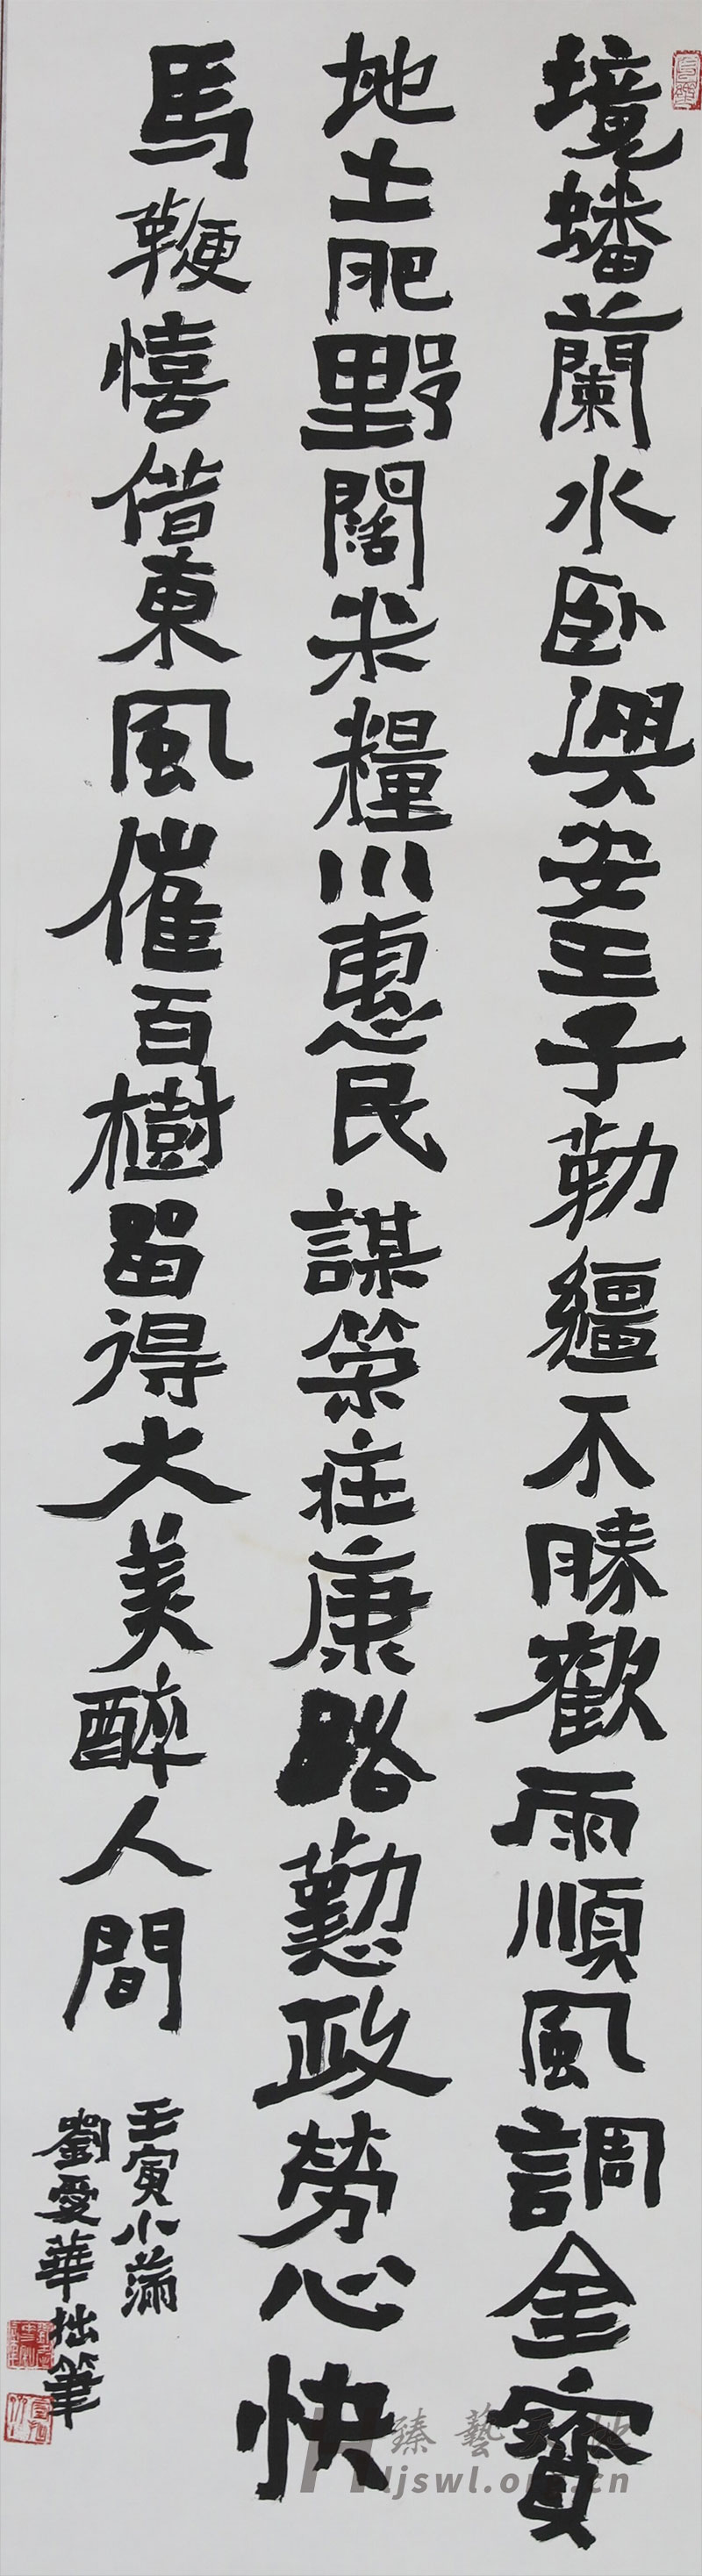 境蟠蘭水卧興安王子勒疆不勝歡雨順風調金寶
地土肥野闊米糧川惠民謀策莊康路勤政勞心快
馬鞭憘借東風催百樹留得大美醉人間
壬寅小滿
劉愛華拙筆
臻藝天地
ljswl.org.cn